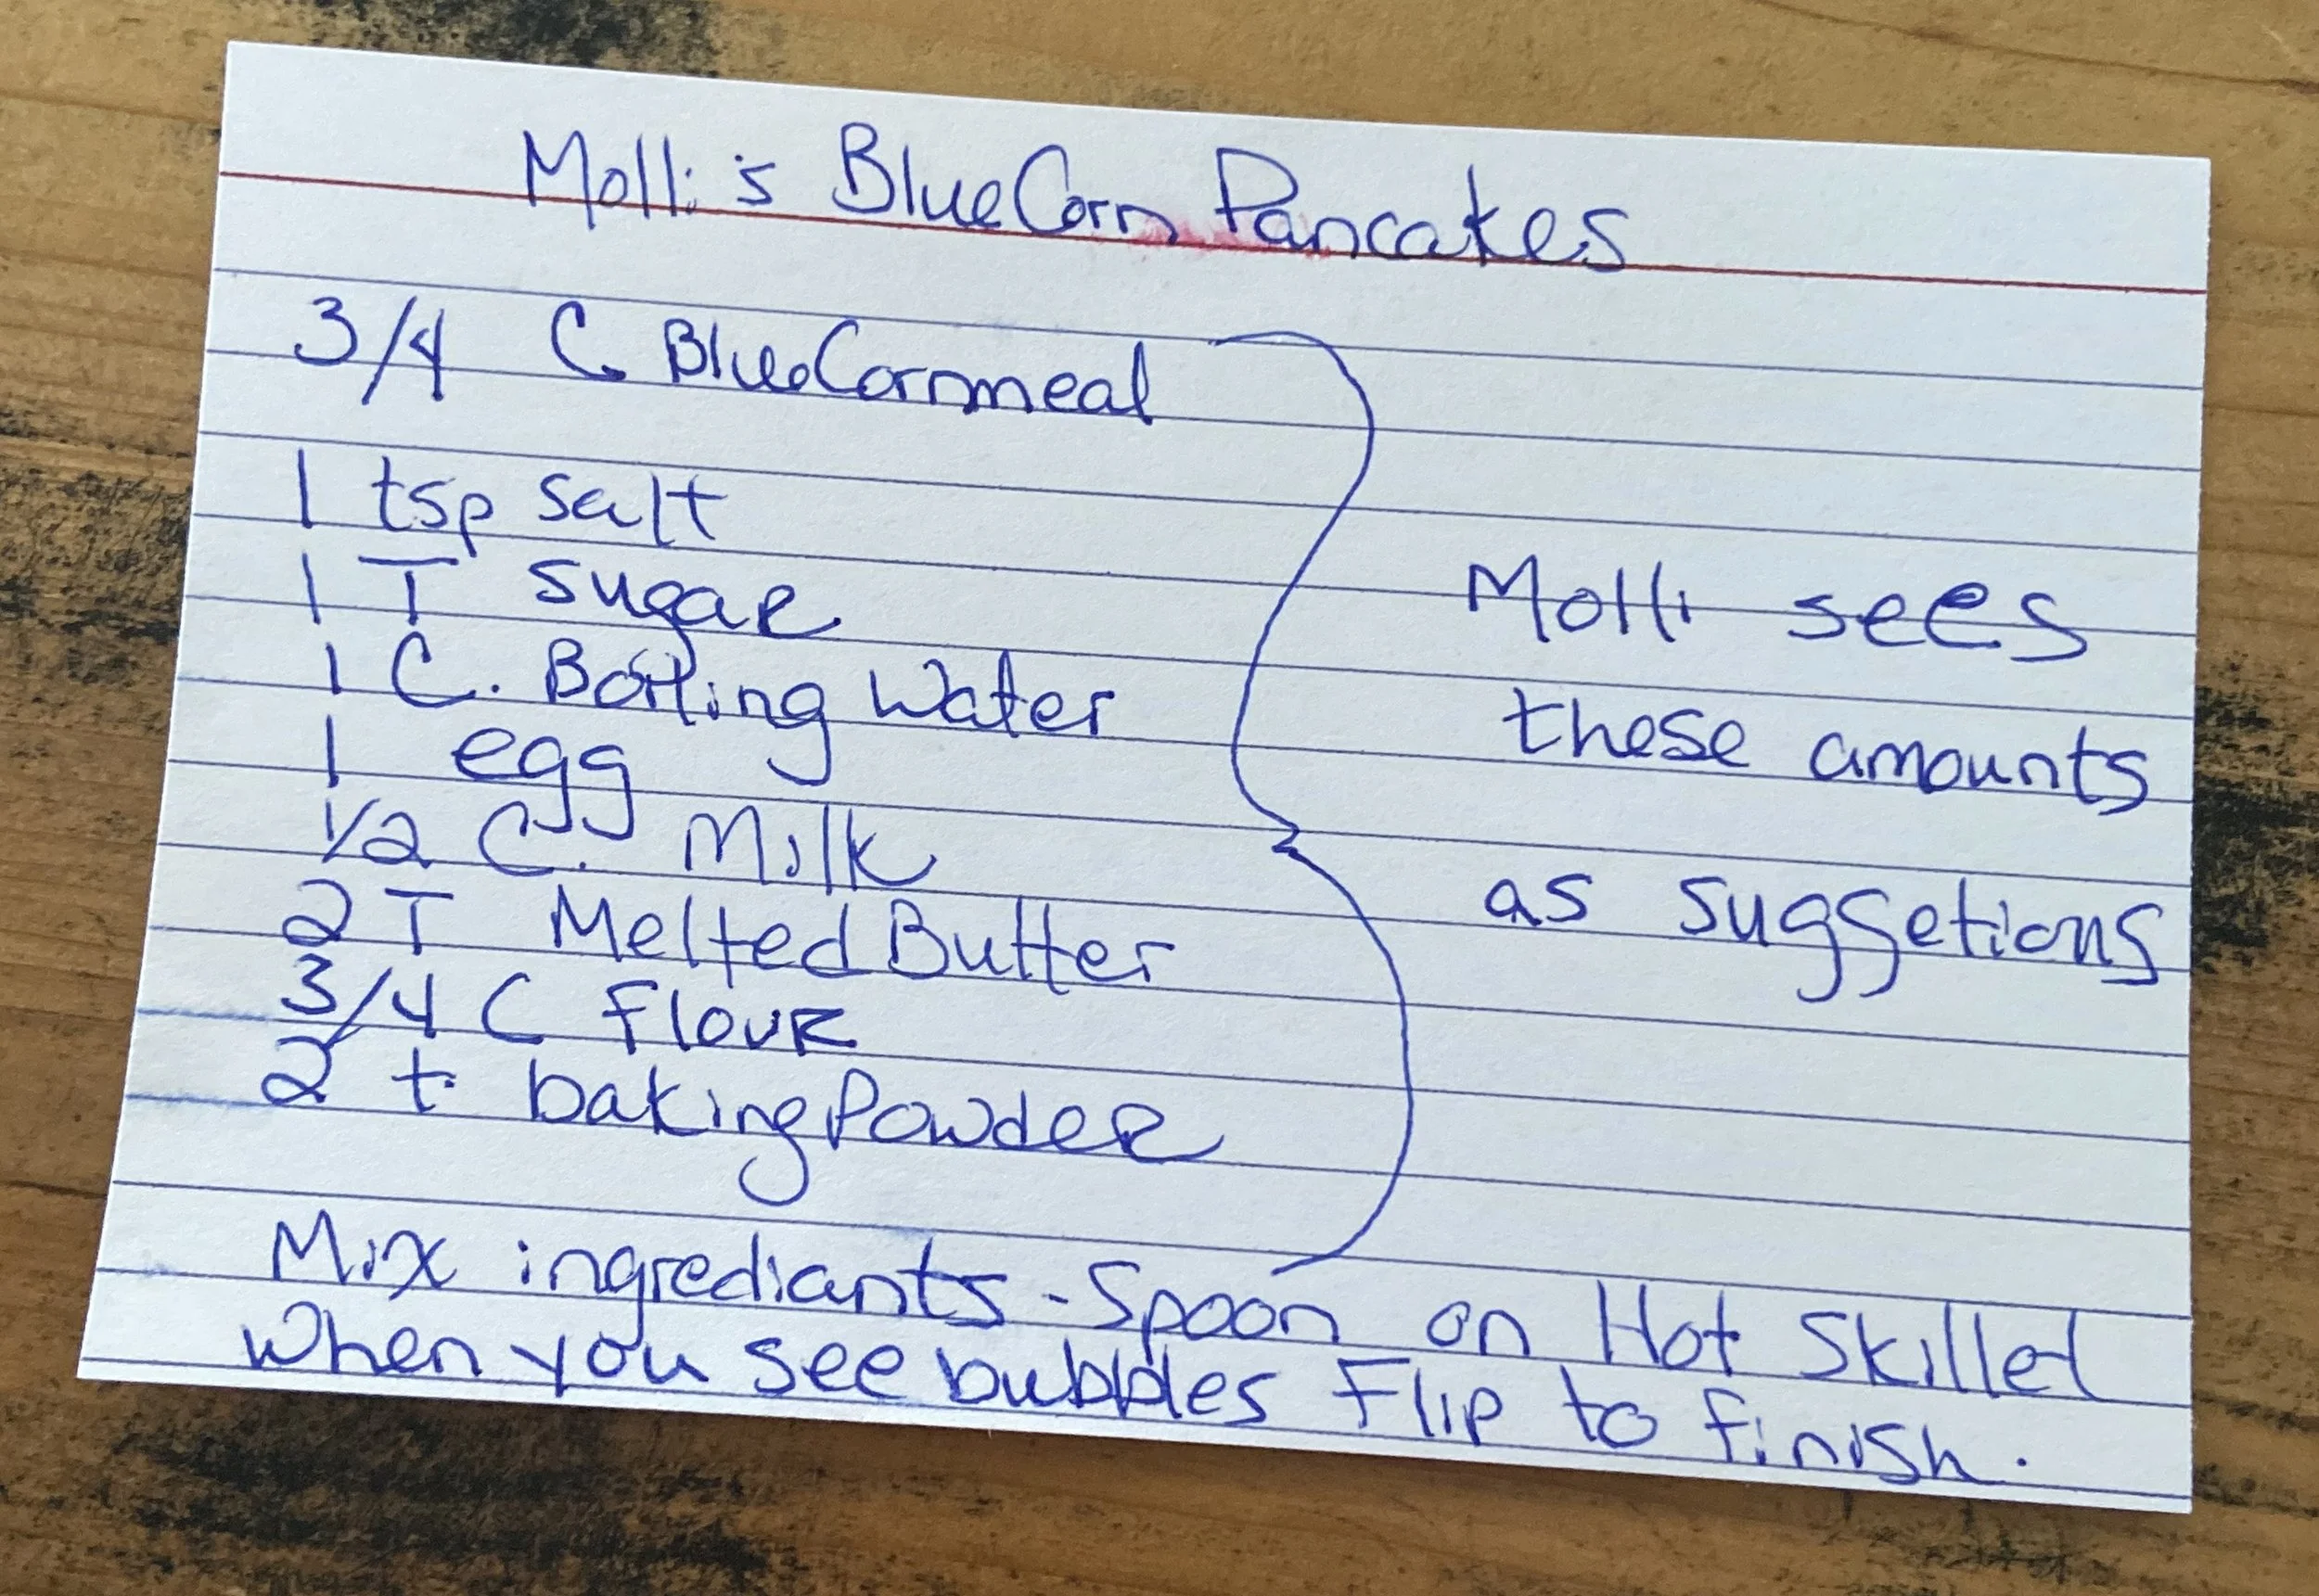 Molli's BlueCorn Pancakes
3/4 C. BlueCornmeal
1 tsp salt
1 T sugar
1 C. Boiling Water
1 egg
1/2 C. Milk
2 T Melted Butter
3/4 C Flour
2 t. baking Powder
Molli sees
these amounts
as suggsetions
Mix ingrediants - Spoon on Hot Skillet
When you see bubbles Flip to finish.